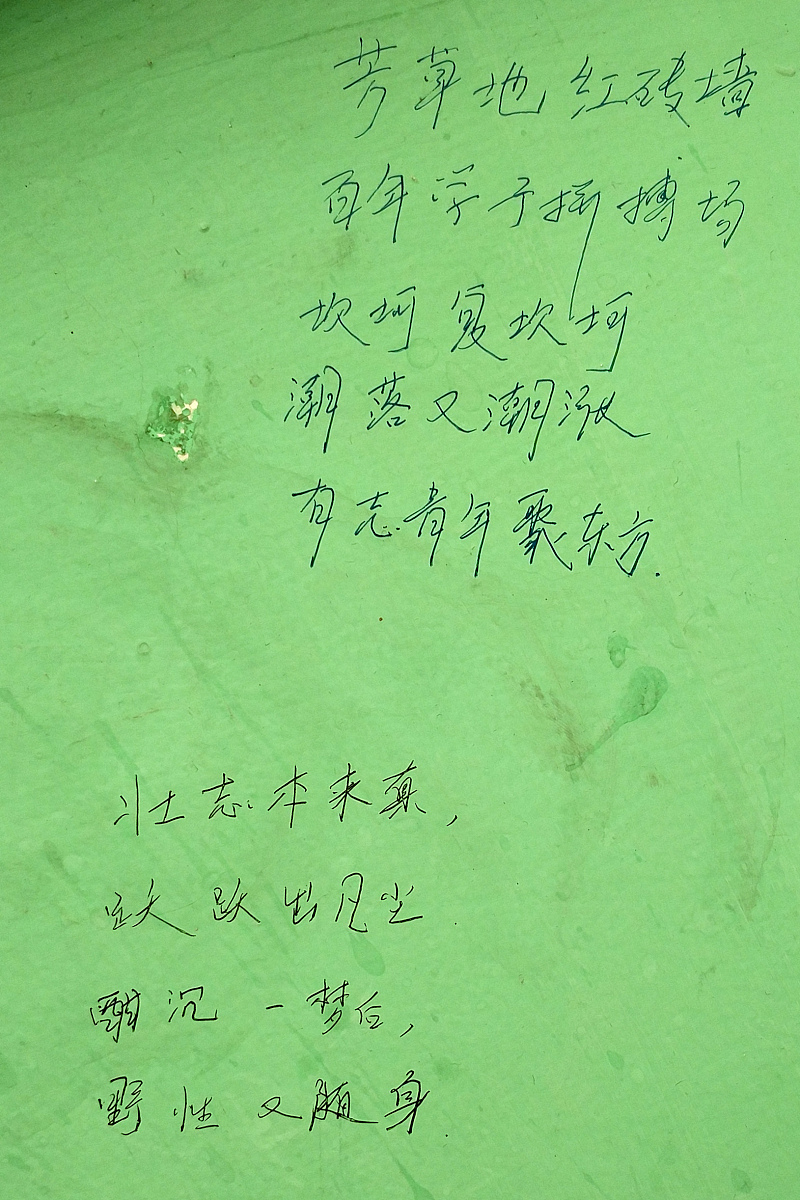 芳草地 红砖墙
百年学子拼搏场
坎坷复坎坷
潮落又潮涨
有志青年聚东方.
壮志本来真,
跃跃出凡尘.
酣沉一梦后,
野性又随身.